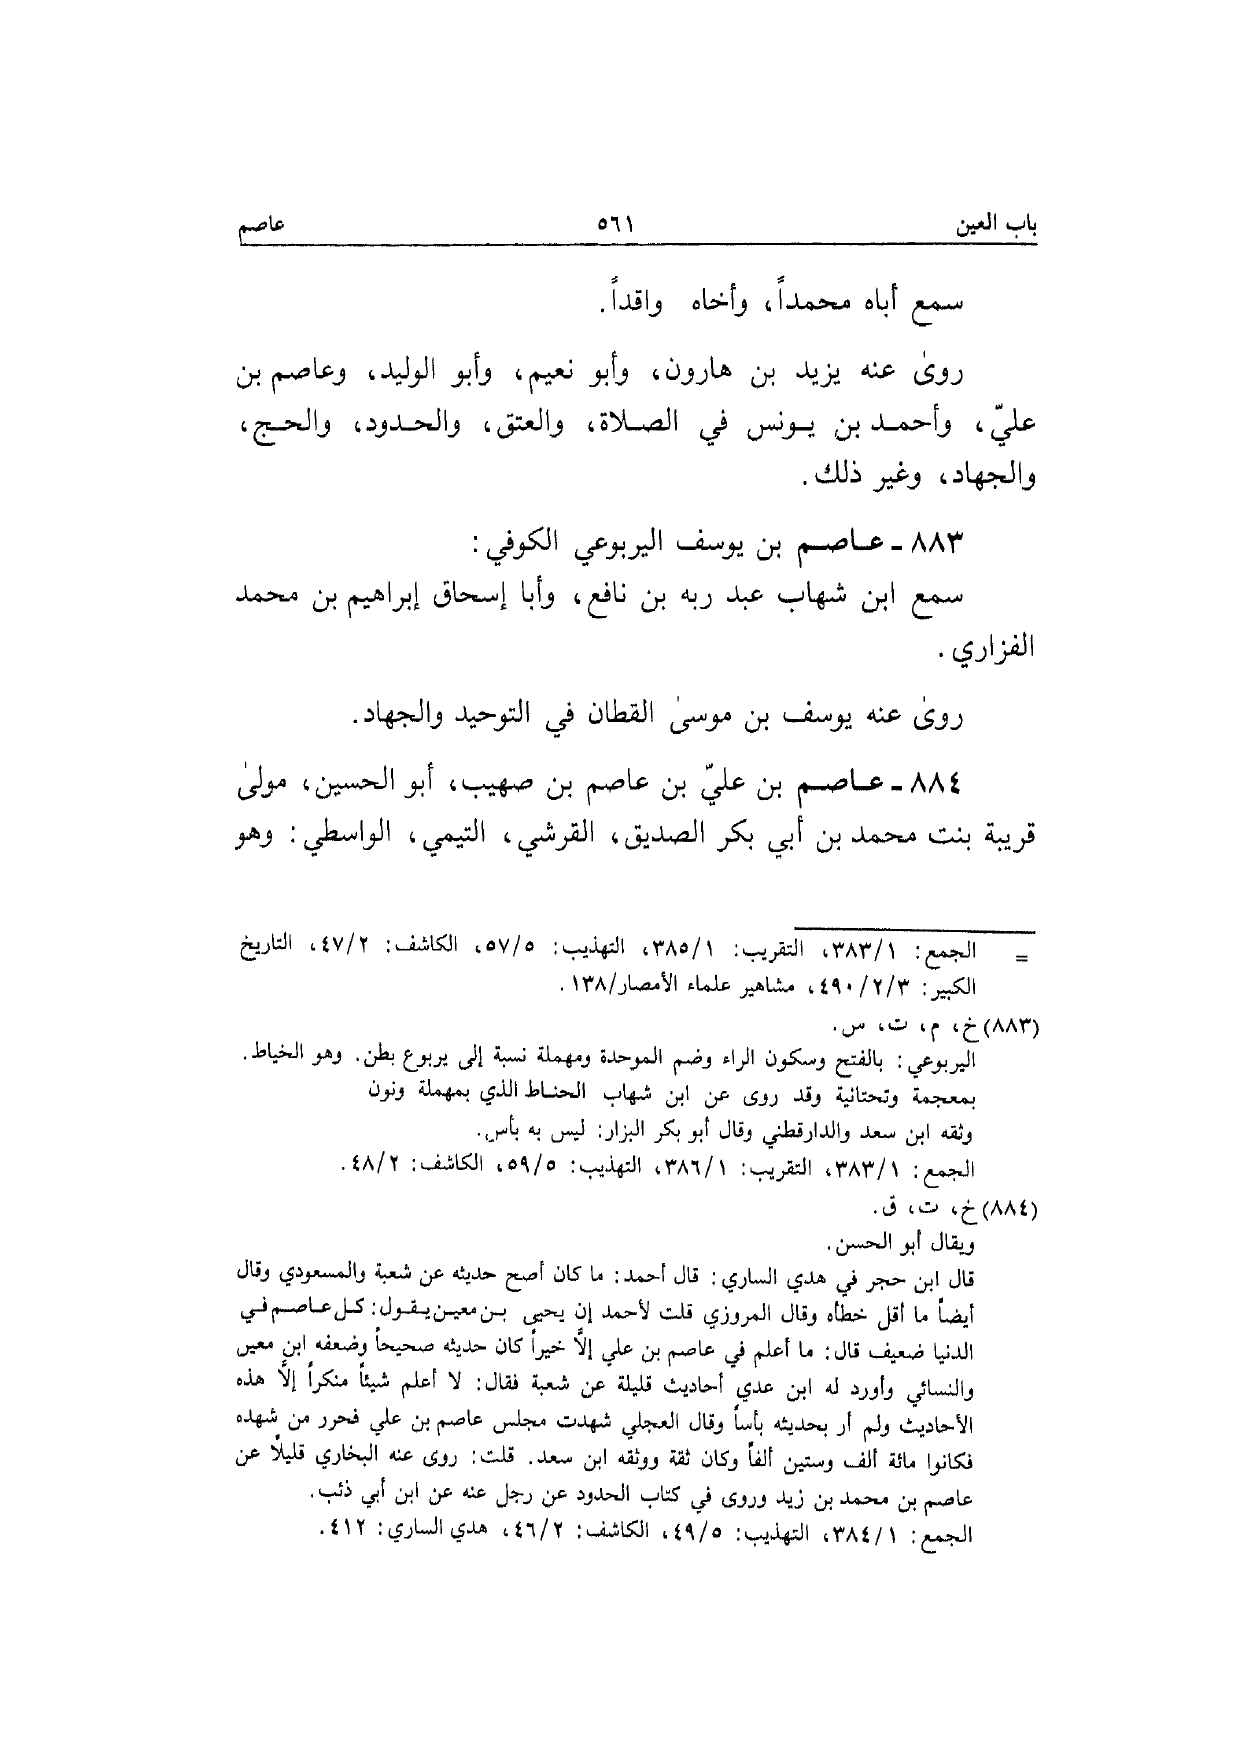 باب العين ٥٦١ عاصم
سمع أباه محمداً، وأخاه واقداً.
روىٰ عنه يزيد بن هارون، وأبو نعيم، وأبو الوليد، وعاصم بن
عليّ، وأحمد بن يونس في الصلاة، والعتق، والحدود، والحج،
والجهاد، وغير ذلك.
٨٨٣ - عاصم بن يوسف اليربوعي الكوفي:
سمع ابن شهاب عبد ربه بن نافع، وأبا إسحاق إبراهيم بن محمد
الفزاري.
روىٰ عنه يوسف بن موسىٰ القطان في التوحيد والجهاد.
٨٨٤ - عاصم بن عليّ بن عاصم بن صهيب، أبو الحسين، مولىٰ
قريبة بنت محمد بن أبي بكر الصديق، القرشي، التيمي، الواسطي: وهو
= الجمع: ٣٨٣/١، التقريب: ٣٨٥/١، التهذيب: ٥٧/٥، الكاشف: ٤٧/٢، التاريخ
الكبير: ٤٩٠/٢/٣، مشاهير علماء الأمصار/١٣٨.
(٨٨٣) خ، م، ت، س.
اليربوعي: بالفتح وسكون الراء وضم الموحدة ومهملة نسبة إلى يربوع بطن. وهو الخياط.
بمعجمة وتحتانية وقد روى عن ابن شهاب الحناط الذي بمهملة ونون
وثقه ابن سعد والدارقطني وقال أبو بكر البزار: ليس به بأس.
الجمع: ٣٨٣/١، التقريب: ٣٨٦/١، التهذيب: ٥٩/٥، الكاشف: ٤٨/٢.
(٨٨٤) خ، ت، ق.
ويقال أبو الحسن.
قال ابن حجر في هدي الساري: قال أحمد: ما كان أصح حديثه عن شعبة والمسعودي وقال
أيضاً ما أقل خطأه وقال المروزي قلت لأحمد إن يحيى بن معين يقول: كل عاصم في
الدنيا ضعيف قال: ما أعلم في عاصم بن علي إلاَّ خيراً كان حديثه صحيحاً وضعفه ابن معين
والنسائي وأورد له ابن عدي أحاديث قليلة عن شعبة فقال: لا أعلم شيئاً منكراً إلاَّ هذه
الأحاديث ولم أر بحديثه بأساً وقال العجلي شهدت مجلس عاصم بن علي فحرر من شهده
فكانوا مائة ألف وستين ألفاً وكان ثقة ووثقه ابن سعد. قلت: روى عنه البخاري قليلاً عن
عاصم بن محمد بن زيد وروى في كتاب الحدود عن رجل عنه عن ابن أبي ذئب.
الجمع: ٣٨٤/١، التهذيب: ٤٩/٥، الكاشف: ٤٦/٢، هدي الساري: ٤١٢.